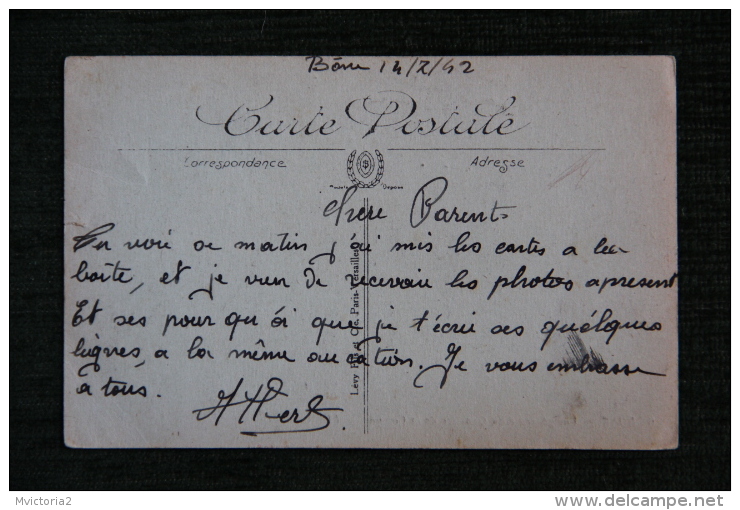 Bône 14/7/42
Carte Postale
Correspondance
Adresse
Modèle Déposé
Chère Parents
En voie ce matin j'ai mis les cartes a la
boîte, et je vien de recevoir les photos apresent
Et ses pour qu'oi que je t'écrie ses quélques
lignes, a la même oucation. Je vous embrasse
à tous.
Albert
Lévy Fils et Cie, Paris-Versailles
Mvictoria2
http://www.delcampe.net